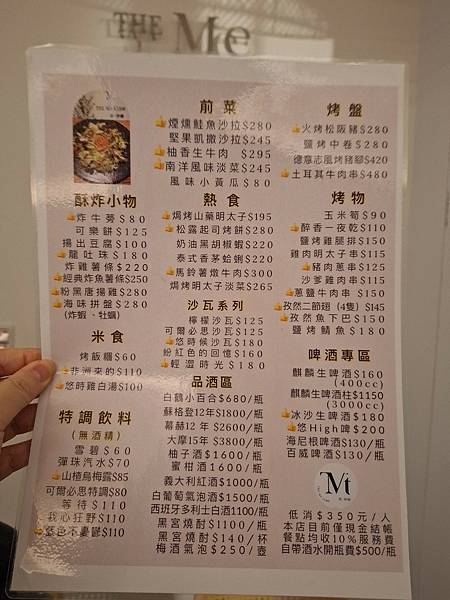 THE Me
前菜
煙燻鮭魚沙拉$280
堅果凱撒沙拉$245
柚香生牛肉 $295
南洋風味淡菜$245
風味小黃瓜$80
烤盤
火烤松阪豬$280
鹽烤中卷$280
德意志風烤豬腳$420
土耳其牛肉串$480
酥炸小物
炸牛蒡$80
可樂餅$125
揚出豆腐$100
龍吐珠$180
炸雞薯條$220
經典炸魚薯條$250
粉黑唐揚雞$280
海味拼盤$280
(炸蝦、牡蠣)
熱食
焗烤山藥明太子$195
松露起司烤餅$280
奶油黑胡椒蝦$220
泰式香茅蛤蜊$220
馬鈴薯燉牛肉$300
焗烤明太子淡菜$265
烤物
玉米筍$90
醉香一夜乾$110
鹽烤雞腿排$150
雞肉明太子串$115
豬肉蔥串$125
沙爹雞肉串$115
蔥鹽牛肉串 $150
孜然二節翅(4隻)$145
孜然魚下巴$150
鹽烤鯖魚$180
沙瓦系列
檸檬沙瓦$125
可爾必思沙瓦$125
悠時候沙瓦$180
紛紅色的回憶$160
輕澀時光$180
米食
烤飯糰$60
非洲來的$110
悠時雞白湯$100
特調飲料
(無酒精)
雪碧$60
彈珠汽水$70
山楂烏梅露$85
可爾必思特調$80
等待$110
我心狂野$110
藍色不憂鬱$110
品酒區
白鶴小百合$680/瓶
蘇格登12年$1800/瓶
慕赫12年$2600/瓶
大摩15年$3800/瓶
柚子酒$1600/瓶
蜜柑酒1600/瓶
義大利紅酒$1000/瓶
白葡萄氣泡酒$1500/瓶
西班牙多利士白酒1100/瓶
黑宮燒酎$1100/瓶
黑宮燒酎$140/杯
梅酒氣泡$250/壺
啤酒專區
麒麟生啤酒$160
(400cc)
麒麟生啤酒柱$1150
(3000cc)
冰沙生啤酒$180
悠High啤$200
海尼根啤酒$130/瓶
百威啤酒$130/瓶
Mt
低消$350元/人
本店目前僅現金結帳
餐點均收10%服務費
自帶酒水開瓶費$500/瓶